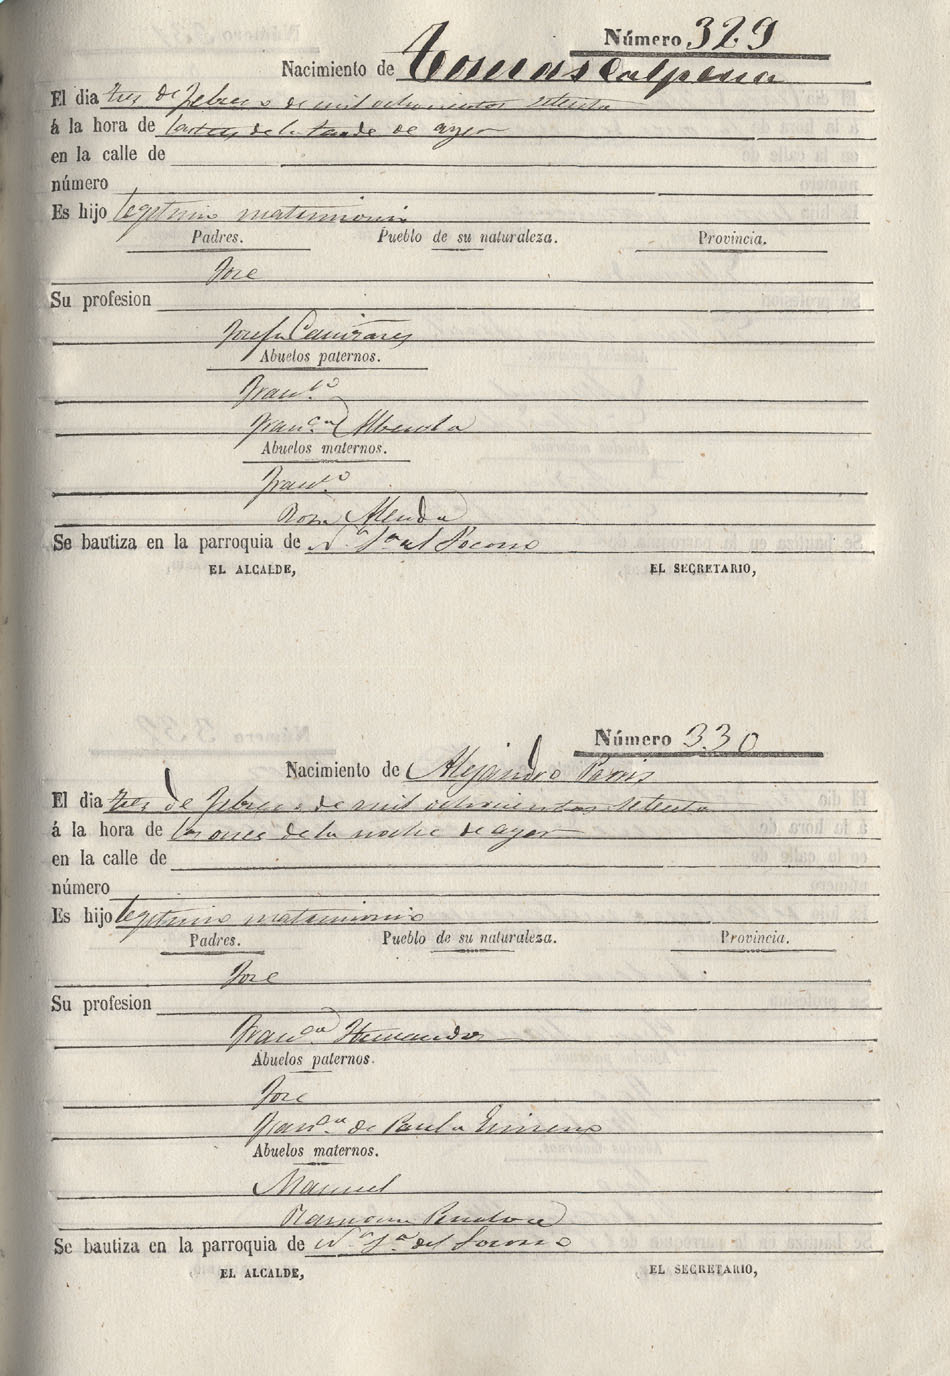 Número 329
Nacimiento de Tomas Calpena
El dia tres de Febrero de mil ochocientos setenta
á la hora de las tres de la tarde de ayer
en la calle de
número
Es hijo legitimo matrimonio
Padres. Pueblo de su naturaleza. Provincia.
Jose
Su profesion
Josefa Cañizares
Abuelos paternos.
Franco
Franca Alberola
Abuelos maternos.
Franco
Rosa Alenda
Se bautiza en la parroquia de Na Sra del Socorro
EL ALCALDE, EL SECRETARIO,
Número 330
Nacimiento de Alejandro
El dia tres de Febrero de mil ochocientos setenta
á la hora de las once de la noche de ayer
en la calle de
número
Es hijo legitimo matrimonio
Padres. Pueblo de su naturaleza. Provincia.
Jose
Su profesion
Franca Hernandez
Abuelos paternos.
Jose
Franca de Paula
Abuelos maternos.
Manuel
Ramona
Se bautiza en la parroquia de Na Sra del Socorro
EL ALCALDE, EL SECRETARIO,